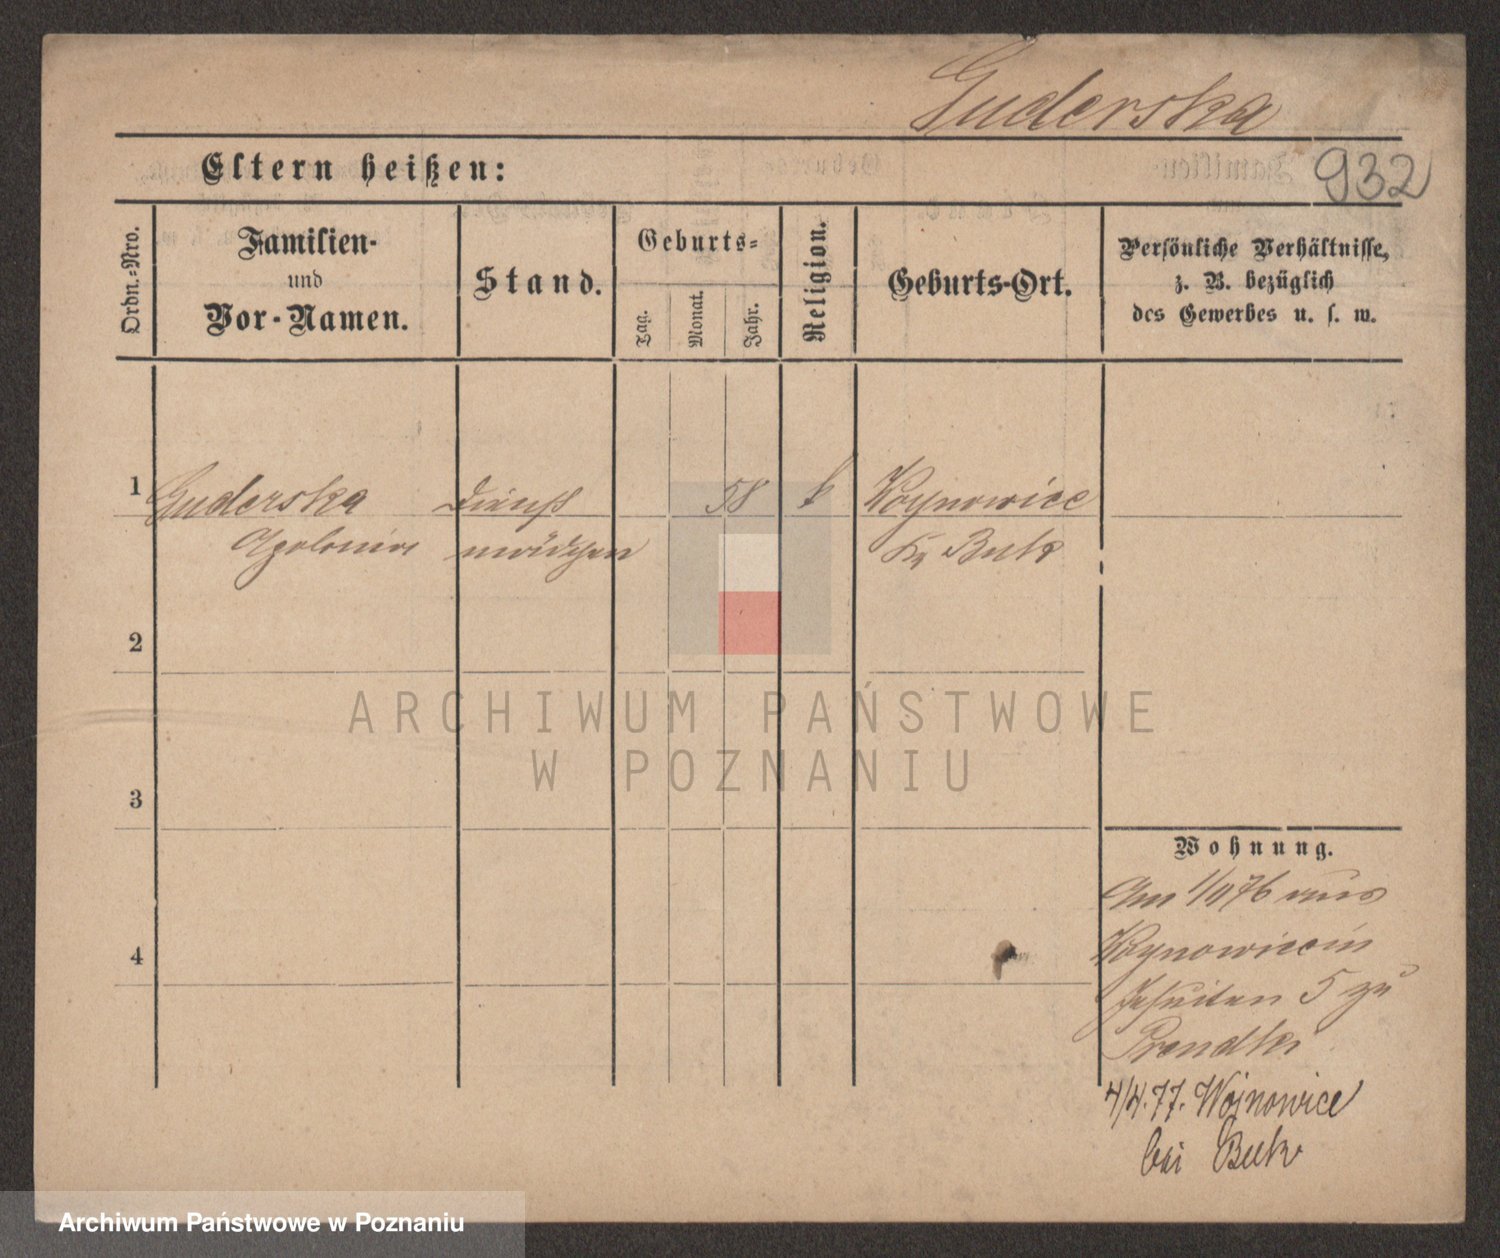 Guderska
932
Eltern heißen:
Ordn.-Nro.
Familien-
und
Vor-Namen.
Stand.
Geburts-
Tag.
Monat.
Jahr.
Religion.
Geburts-Ort.
Persönliche Verhältnisse,
z. B. bezüglich
des Gewerbes u. s. w.
1 Guderska Dienst 58 k Woynowice
Apolonia mädchen Kr Buk
2
3
4
Wohnung.
Am 1/1 76 aus
Woynowice in
Jesuiten 5 zu
4/4. 77. Wojnowice
bei Buk
ARCHIWUM PAŃSTWOWE
W POZNANIU
Archiwum Państwowe w Poznaniu